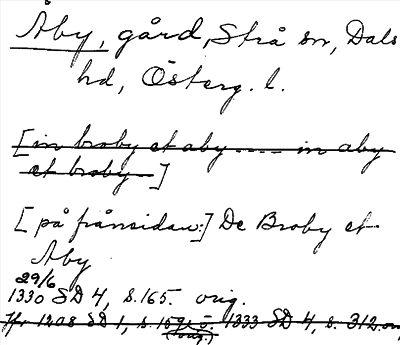 Åby, gård, Strå sn, Dals
hd, Österg. l.
[in broby et aby ---- in aby
et broby -]
[på frånsidan:] De Broby et
Aby
29/6
1330 SD 4, s. 165. orig.
Jfr 1208 SD 1, s. 1 1333 SD 4, s. 312.
(orig.)